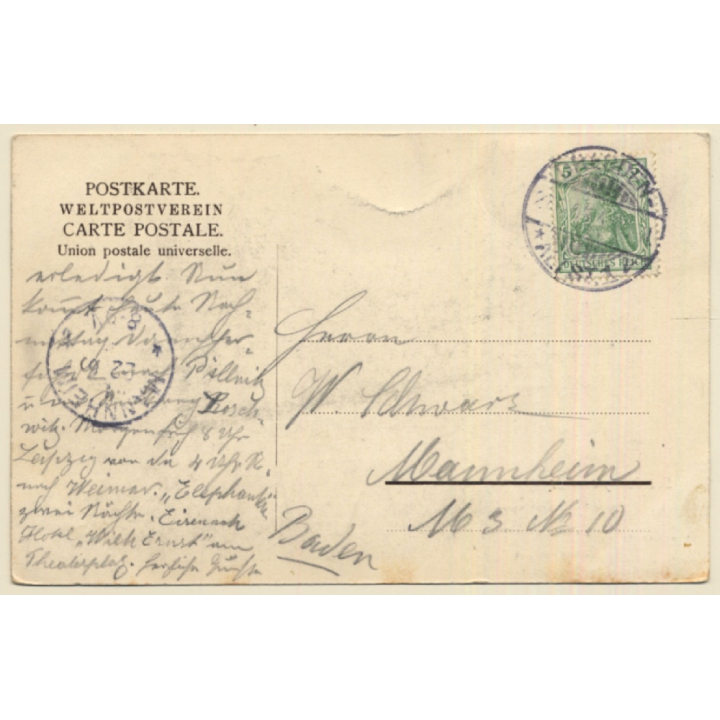 POSTKARTE.
WELTPOSTVEREIN
CARTE POSTALE.
Union postale universelle.
erledigt. Nun
kommt heute Nach-
mittag
Pillnitz
Losch-
witz. Morgen früh 8 Uhr
Leipzig von da 4 Uhr N.
nach Weimar. „Elephanten"
zwei Nächte. Eisenach
Hotel „Wilh Ernst" am
Theaterplatz. Herzliche Grüße
MANNHEIM
5
DEUTSCHES REICH
Herrn
W Schwarz
Mannheim
M 3 No 10
Baden